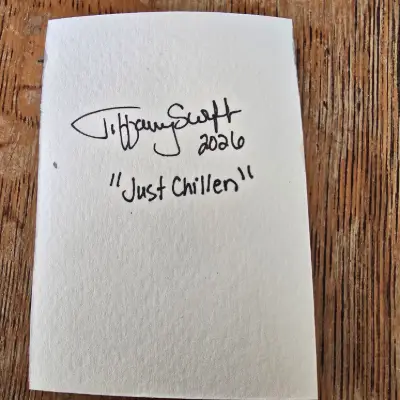 Tiffany Swift
2026
"Just Chillen"